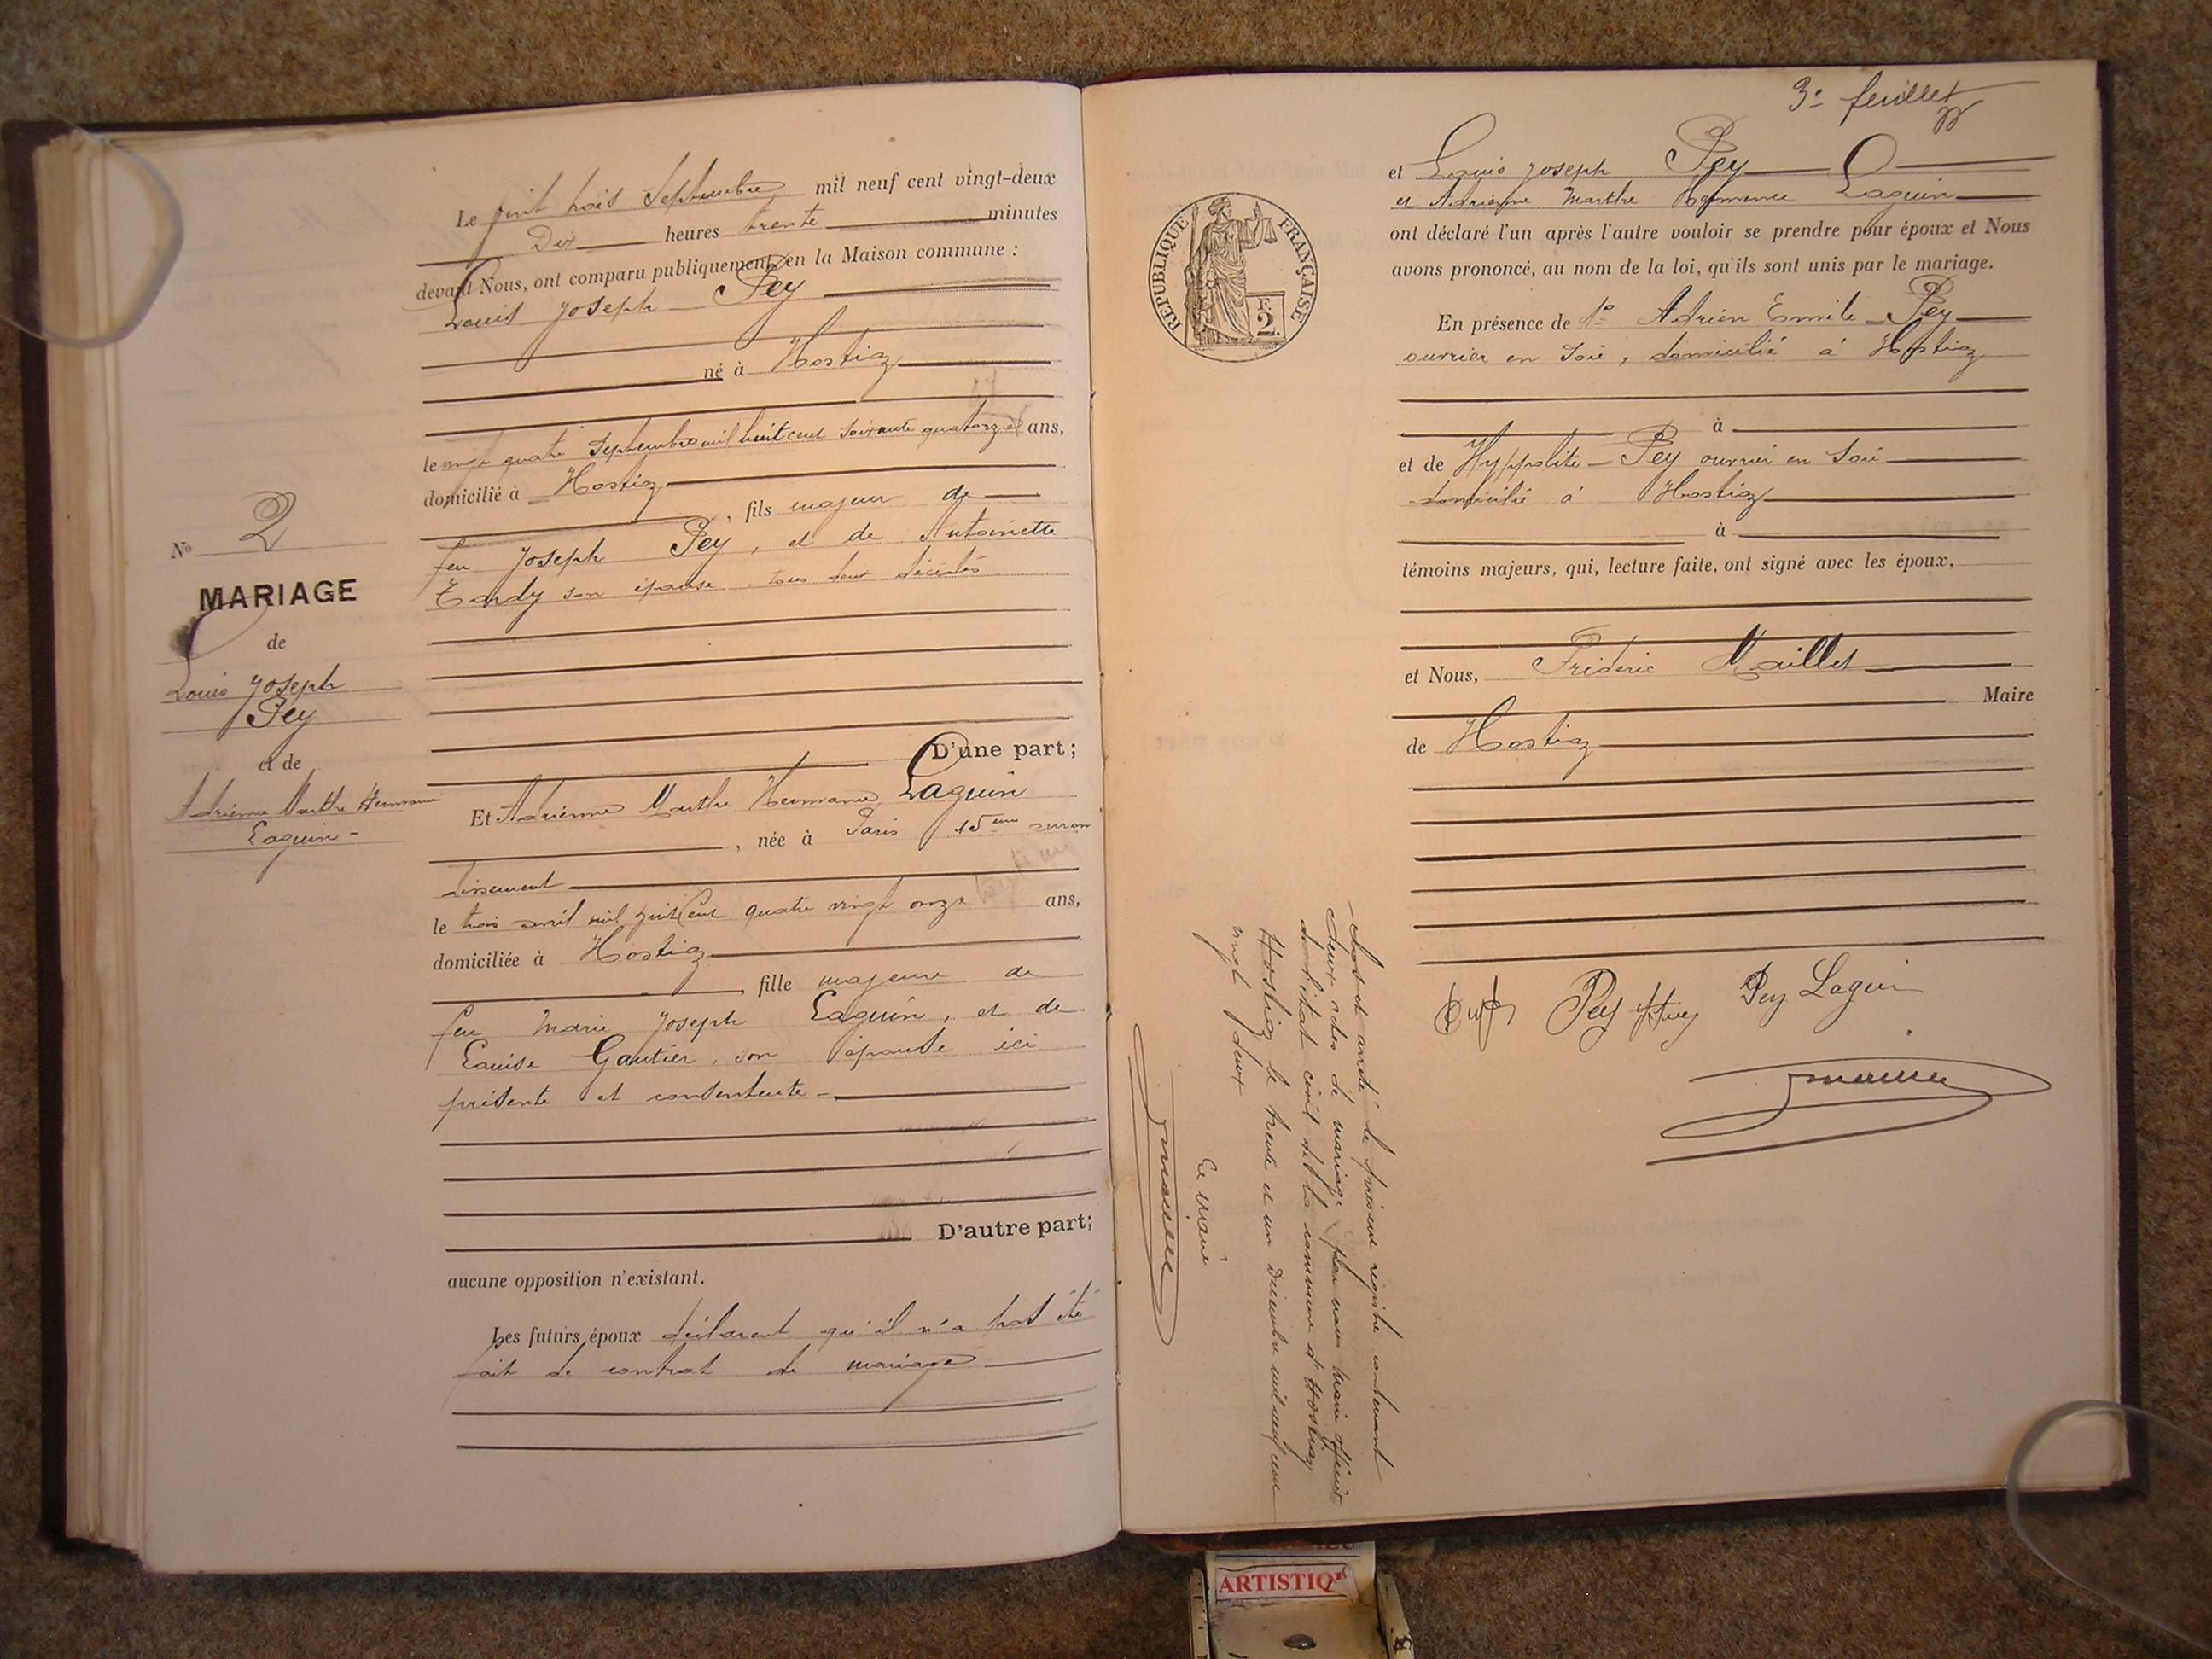 Le vint trois Septembre mil neuf cent vingt-deux
Dix heures trente minutes
devant Nous, ont comparu publiquement en la Maison commune :
Louis Joseph Pey
né à Hostiaz
le vingt quatre Septembre mil huit cent soixante quatorze ans,
domicilié à Hostiaz
, fils majeur de
feu Joseph Pey, et de Antoinette
Tardy son épouse tous deux décédés
D'une part;
No 2
MARIAGE
de
Louis Joseph
Pey
et de
Adrienne Marthe Hermance
Laguin -
Et Adrienne Marthe Hermance Laguin
, née à Paris 15eme arron
dissement
le trois avril mil huit Cent quatre vingt onze ans,
domiciliée à Hostiaz
, fille majeure de
feu Marie Joseph Laguin, et de
Louise Gautier, son épouse ici
présente et consentente -
D'autre part;
aucune opposition n'existant.
Les futurs époux déclarent qu'il n'a pas été
fait de contrat de mariage
3e feuillet
et Louis Joseph Pey
et Adrienne Marthe Hermance Laguin
ont déclaré l'un après l'autre vouloir se prendre pour époux et Nous
avons prononcé, au nom de la loi, qu'ils sont unis par le mariage.
En présence de 1o Adrien Emile Pey
ouvrier en soie, domicilié à Hostiaz
à
et de Hyppolite Pey ouvrier en soie
domicilié à Hostiaz
à
témoins majeurs, qui, lecture faite, ont signé avec les époux,
et Nous, Fridéric Maillet
Maire
de Hostiaz
Pey Pey Laguin
RÉPUBLIQUE FRANÇAISE
F.
2
Clos et arrêté le présent registre contenant
deux actes de mariage par nous maire officier
de l'état civil de la commune d'Hostiaz
Hostiaz le trente et un Décembre mil neuf cent
vingt deux
Le maire
ARTISTIQ